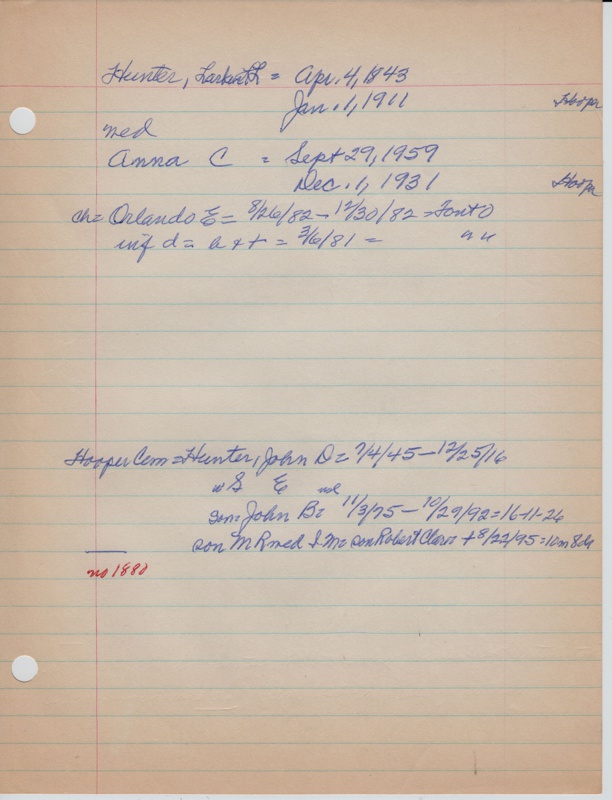 Hunter, = Apr. 4, 1843
Jan. 1, 1911 Hooper
med
Anna C = Sept 29, 1959
Dec. 1, 1931 Hooper
ch= Orlando E = 8/26/82 - 12/30/82 =
inf d = b + t = 3/6/81 = " "
Hooper Cem = Hunter, John D = 7/4/45 - 12/25/16
w S E
son= John B= 11/3/75 - 10/29/92 = 16-11-26
son M R med I M = son Robert = + 8/22/95 = 10m 8da
no 1880